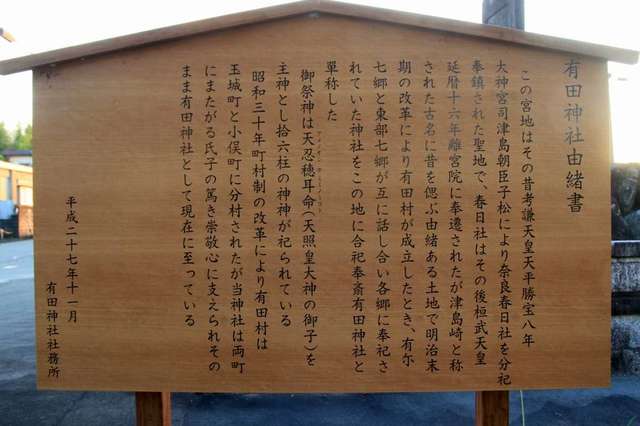 有田神社由緒書
この宮地はその昔考謙天皇天平勝宝八年
大神宮司津島朝臣子松により奈良春日社を分祀
奉鎮された聖地で、春日社はその後桓武天皇
延暦十六年離宮院に奉遷されたが津島﨑と称
された古名に昔を偲ぶ由緒ある土地で明治末
期の改革により有田村が成立したとき、有尓
七郷と東部七郷が互に話し合い各郷に奉祀さ
れていた神社をこの地に合祀奉斎有田神社と
単称した
御祭神は天忍穂耳命(天照皇大神の御子)を
主神とし拾六柱の神神が祀られている
昭和三十年町村制の改革により有田村は
玉城町と小俣町に分村されたが当神社は両町
にまたがる氏子の篤き崇敬心に支えられその
まま有田神社として現在に至っている
平成二十七年十一月
有田神社社務所